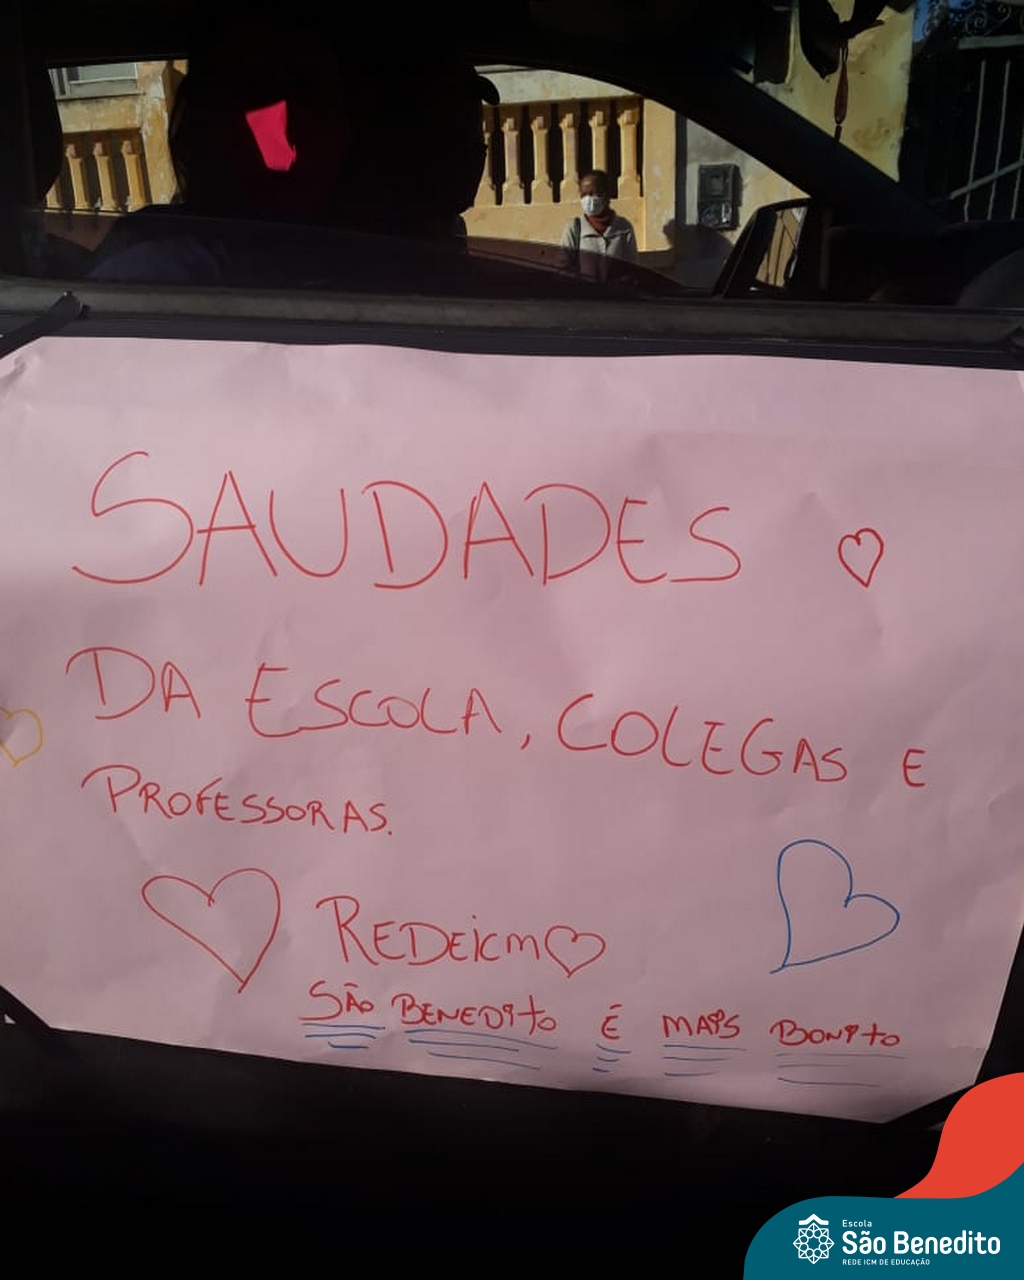 SAUDADES
DA ESCOLA, COLEGAS E
PROFESSORAS.
REDEICM
SÃO BENEDITO É MAIS BONITO
Escola
São Benedito
REDE ICM DE EDUCAÇÃO